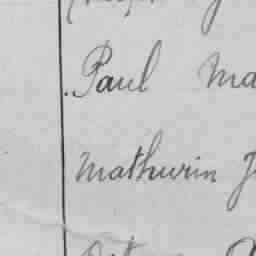 Paul Ma
Mathurin J